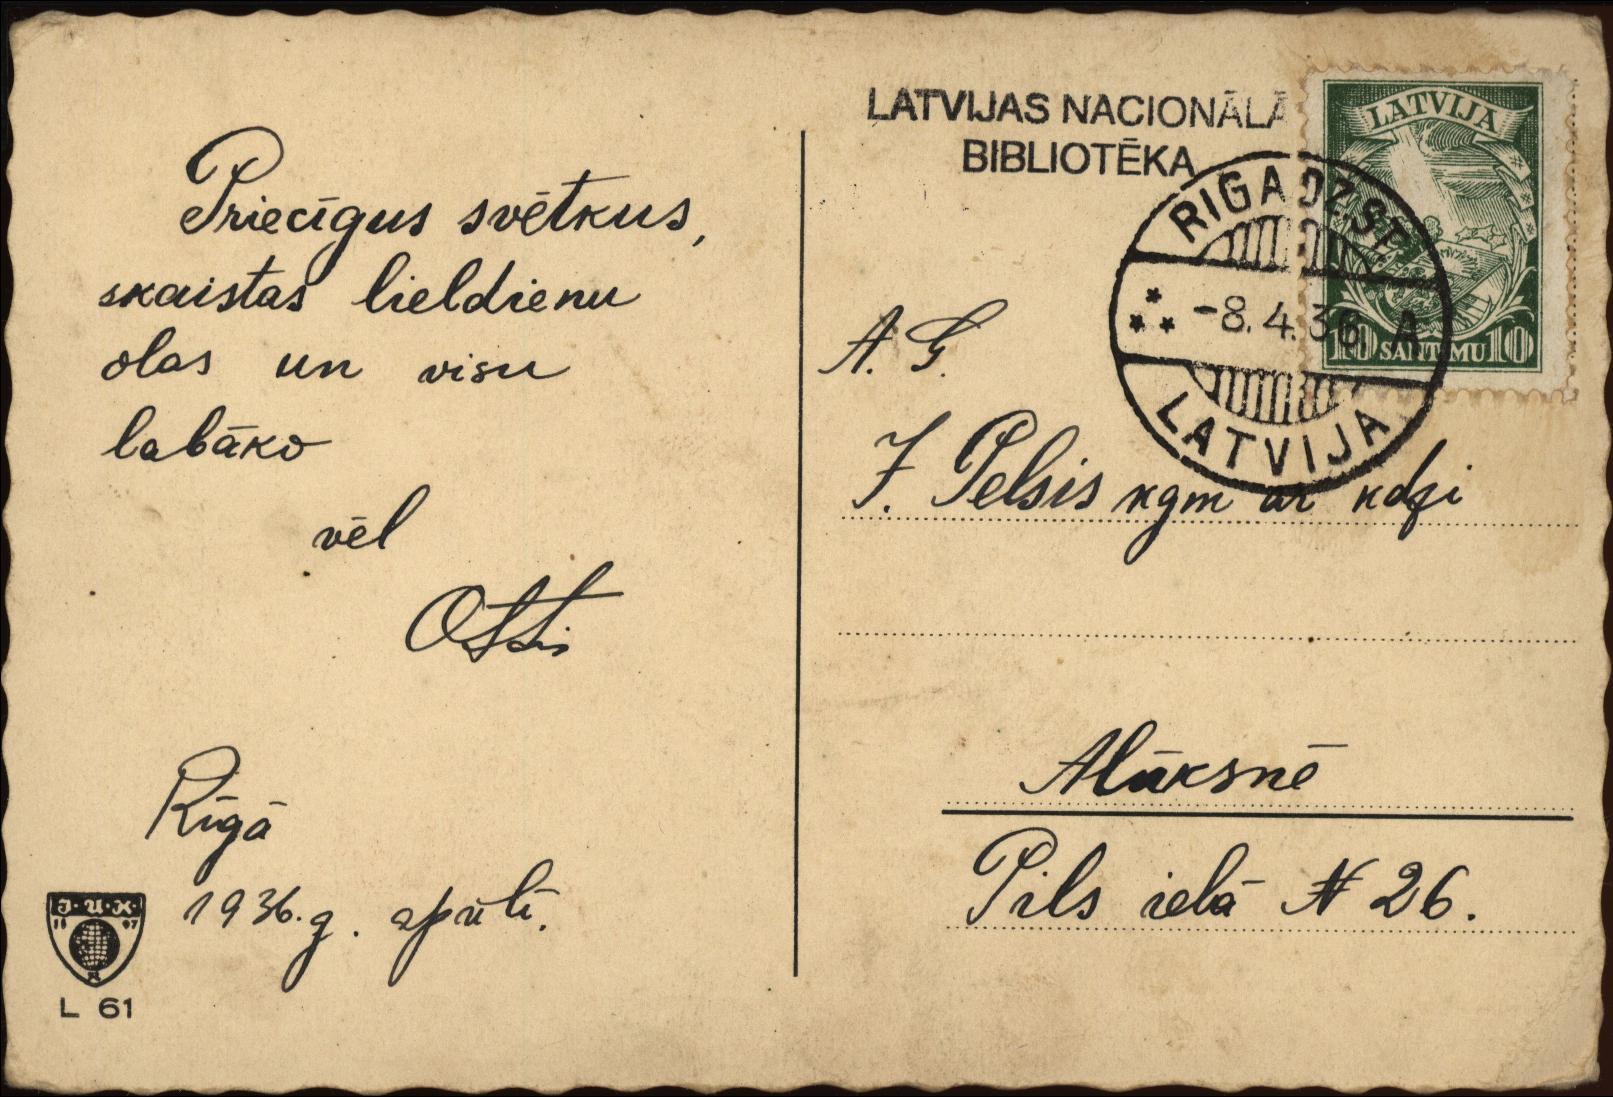 Priecīgus svētkus,
skaistas lieldienu
olas un visu
labāko
vēl
Rīgā
1936. g. aprīlī.
J·U·K·
R
L 61
LATVIJAS NACIONĀLĀ
BIBLIOTĒKA
LATVIJA
10 SANTIMU 10
RIGA DZ. ST.
-8.4.36 A
LATVIJA
A. G.
J. Pelsis kgm ar kdzi
Alūksnē
Pils ielā N 26.